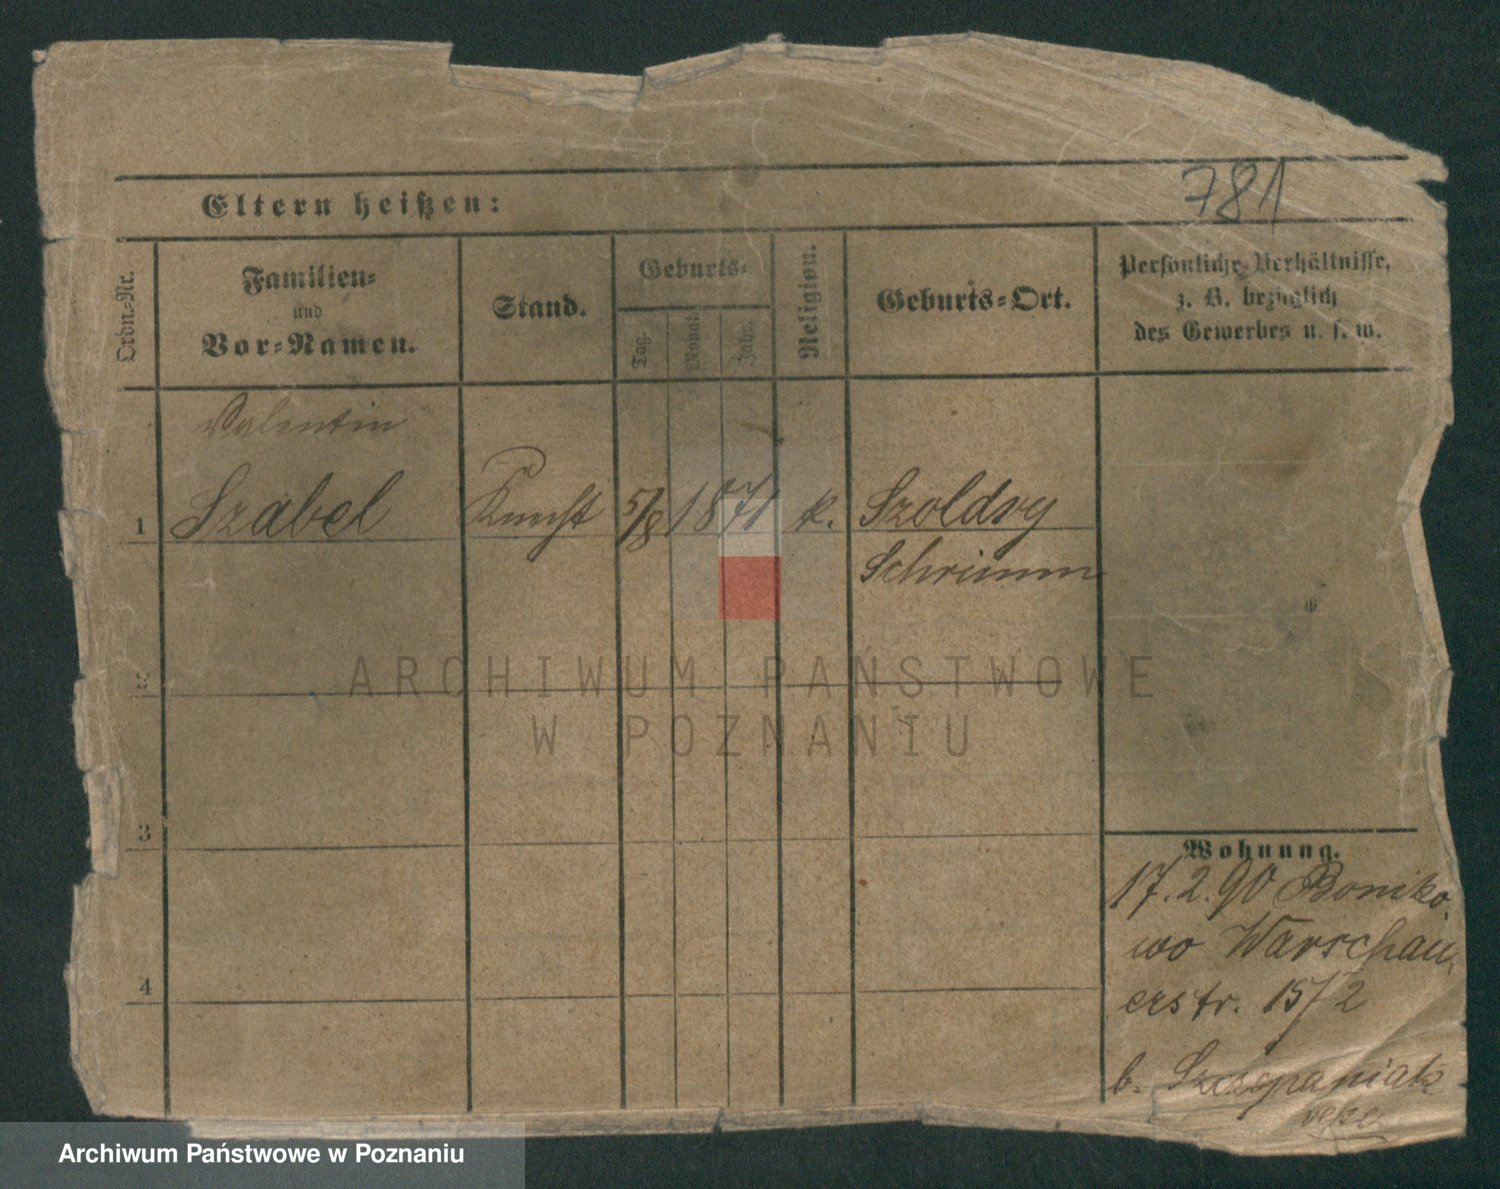 781
Eltern heißen:
Ordn.-Nr.
Familien-
und
Vor-Namen.
Stand.
Geburts-
Tag.
Monat
Jahr.
Religion.
Geburts-Ort.
Persönliche Verhältnisse,
z. B. bezüglich
des Gewerbes u. s. w.
Valentin
1 Szabel Knecht 5/8 1871 k. Szoldry
Schrimm
2
3
4
Wohnung.
17.2.90 Boniko
wo Warschau
erstr. 15/2
b. Szczepaniak
ARCHIWUM PAŃSTWOWE
W POZNANIU
Archiwum Państwowe w Poznaniu